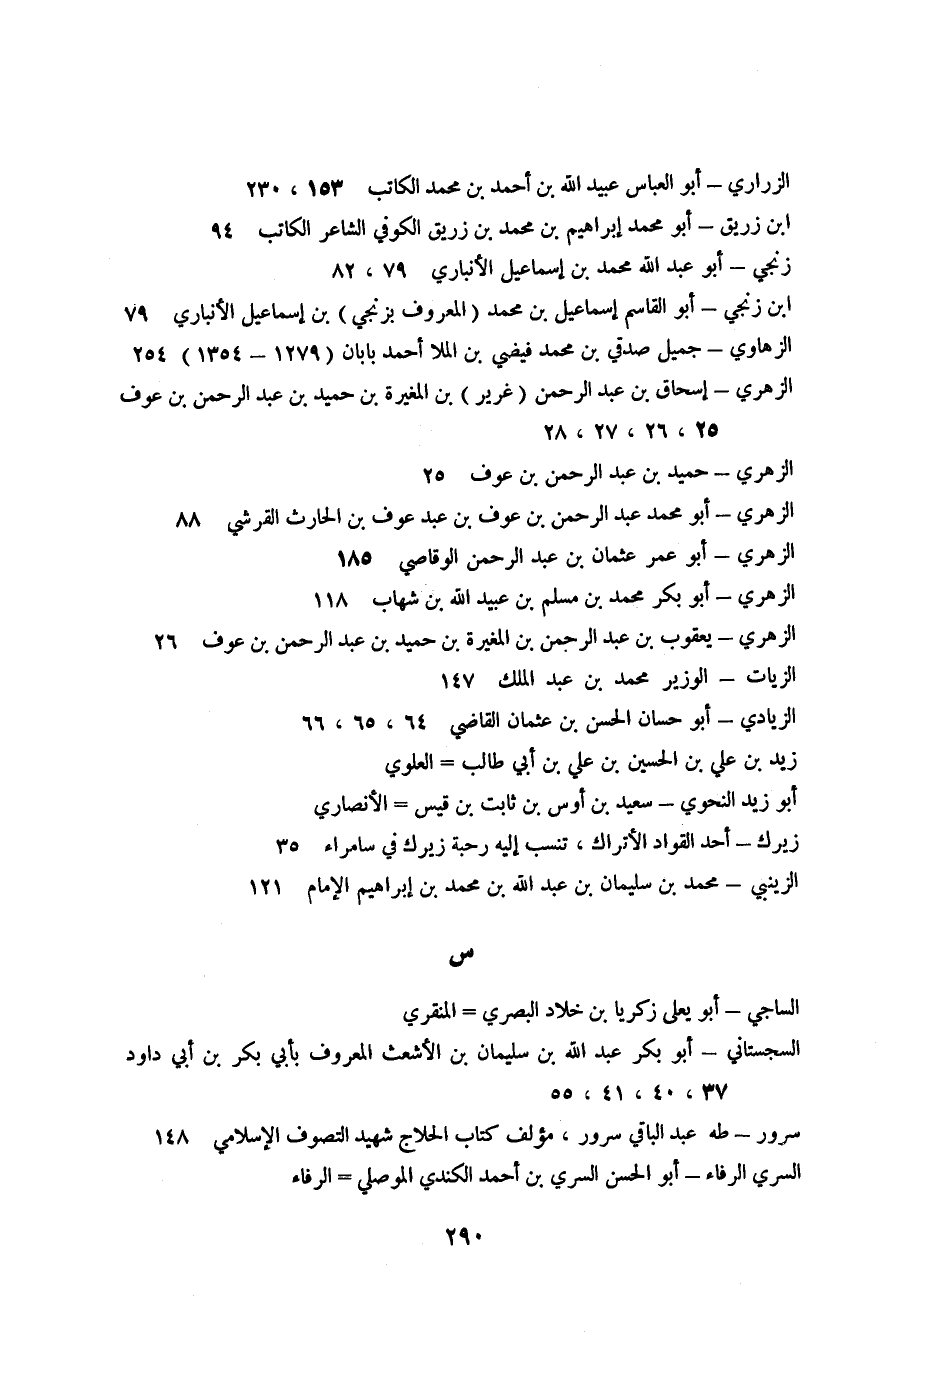 الزراري – أبو العباس عبيد الله بن أحمد بن محمد الكاتب ١٥٣ ، ٢٣٠
ابن زريق – أبو محمد إبراهيم بن محمد بن زريق الكوفي الشاعر الكاتب ٩٤
زنجي – أبو عبد الله محمد بن إسماعيل الأنباري ٧٩ ، ٨٢
ابن زنجي – أبو القاسم إسماعيل بن محمد ( المعروف بزنجي ) بن إسماعيل الأنباري ٧٩
الزهاوي – جميل صدقي بن محمد فيضي بن الملا أحمد بابان ( ١٢٧٩ – ١٣٥٤ ) ٢٥٤
الزهري – إسحاق بن عبد الرحمن ( غرير ) بن المغيرة بن حميد بن عبد الرحمن بن عوف
٢٥ ، ٢٦ ، ٢٧ ، ٢٨
الزهري – حميد بن عبد الرحمن بن عوف ٢٥
الزهري – أبو محمد عبد الرحمن بن عوف بن عبد عوف بن الحارث القرشي ٨٨
الزهري – أبو عمر عثمان بن عبد الرحمن الوقاصي ١٨٥
الزهري – أبو بكر محمد بن مسلم بن عبيد الله بن شهاب ١١٨
الزهري – يعقوب بن عبد الرحمن بن المغيرة بن حميد بن عبد الرحمن بن عوف ٢٦
الزيات – الوزير محمد بن عبد الملك ١٤٧
الزيادي – أبو حسان الحسن بن عثمان القاضي ٦٤ ، ٦٥ ، ٦٦
زيد بن علي بن الحسين بن علي بن أبي طالب = العلوي
أبو زيد النحوي – سعيد بن أوس بن ثابت بن قيس = الأنصاري
زيرك – أحد القواد الأتراك ، تنسب إليه رحبة زيرك في سامراء ٣٥
الزينبي – محمد بن سليمان بن عبد الله بن محمد بن إبراهيم الإمام ١٢١
س
الساجي – أبو يعلى زكريا بن خلاد البصري = المنقري
السجستاني – أبو بكر عبد الله بن سليمان بن الأشعث المعروف بأبي بكر بن أبي داود
٣٧ ، ٤٠ ، ٤١ ، ٥٥
سرور – طه عبد الباقي سرور ، مؤلف كتاب الحلاج شهيد التصوف الإسلامي ١٤٨
السري الرفاء – أبو الحسن السري بن أحمد الكندي الموصلي = الرفاء
٢٩٠